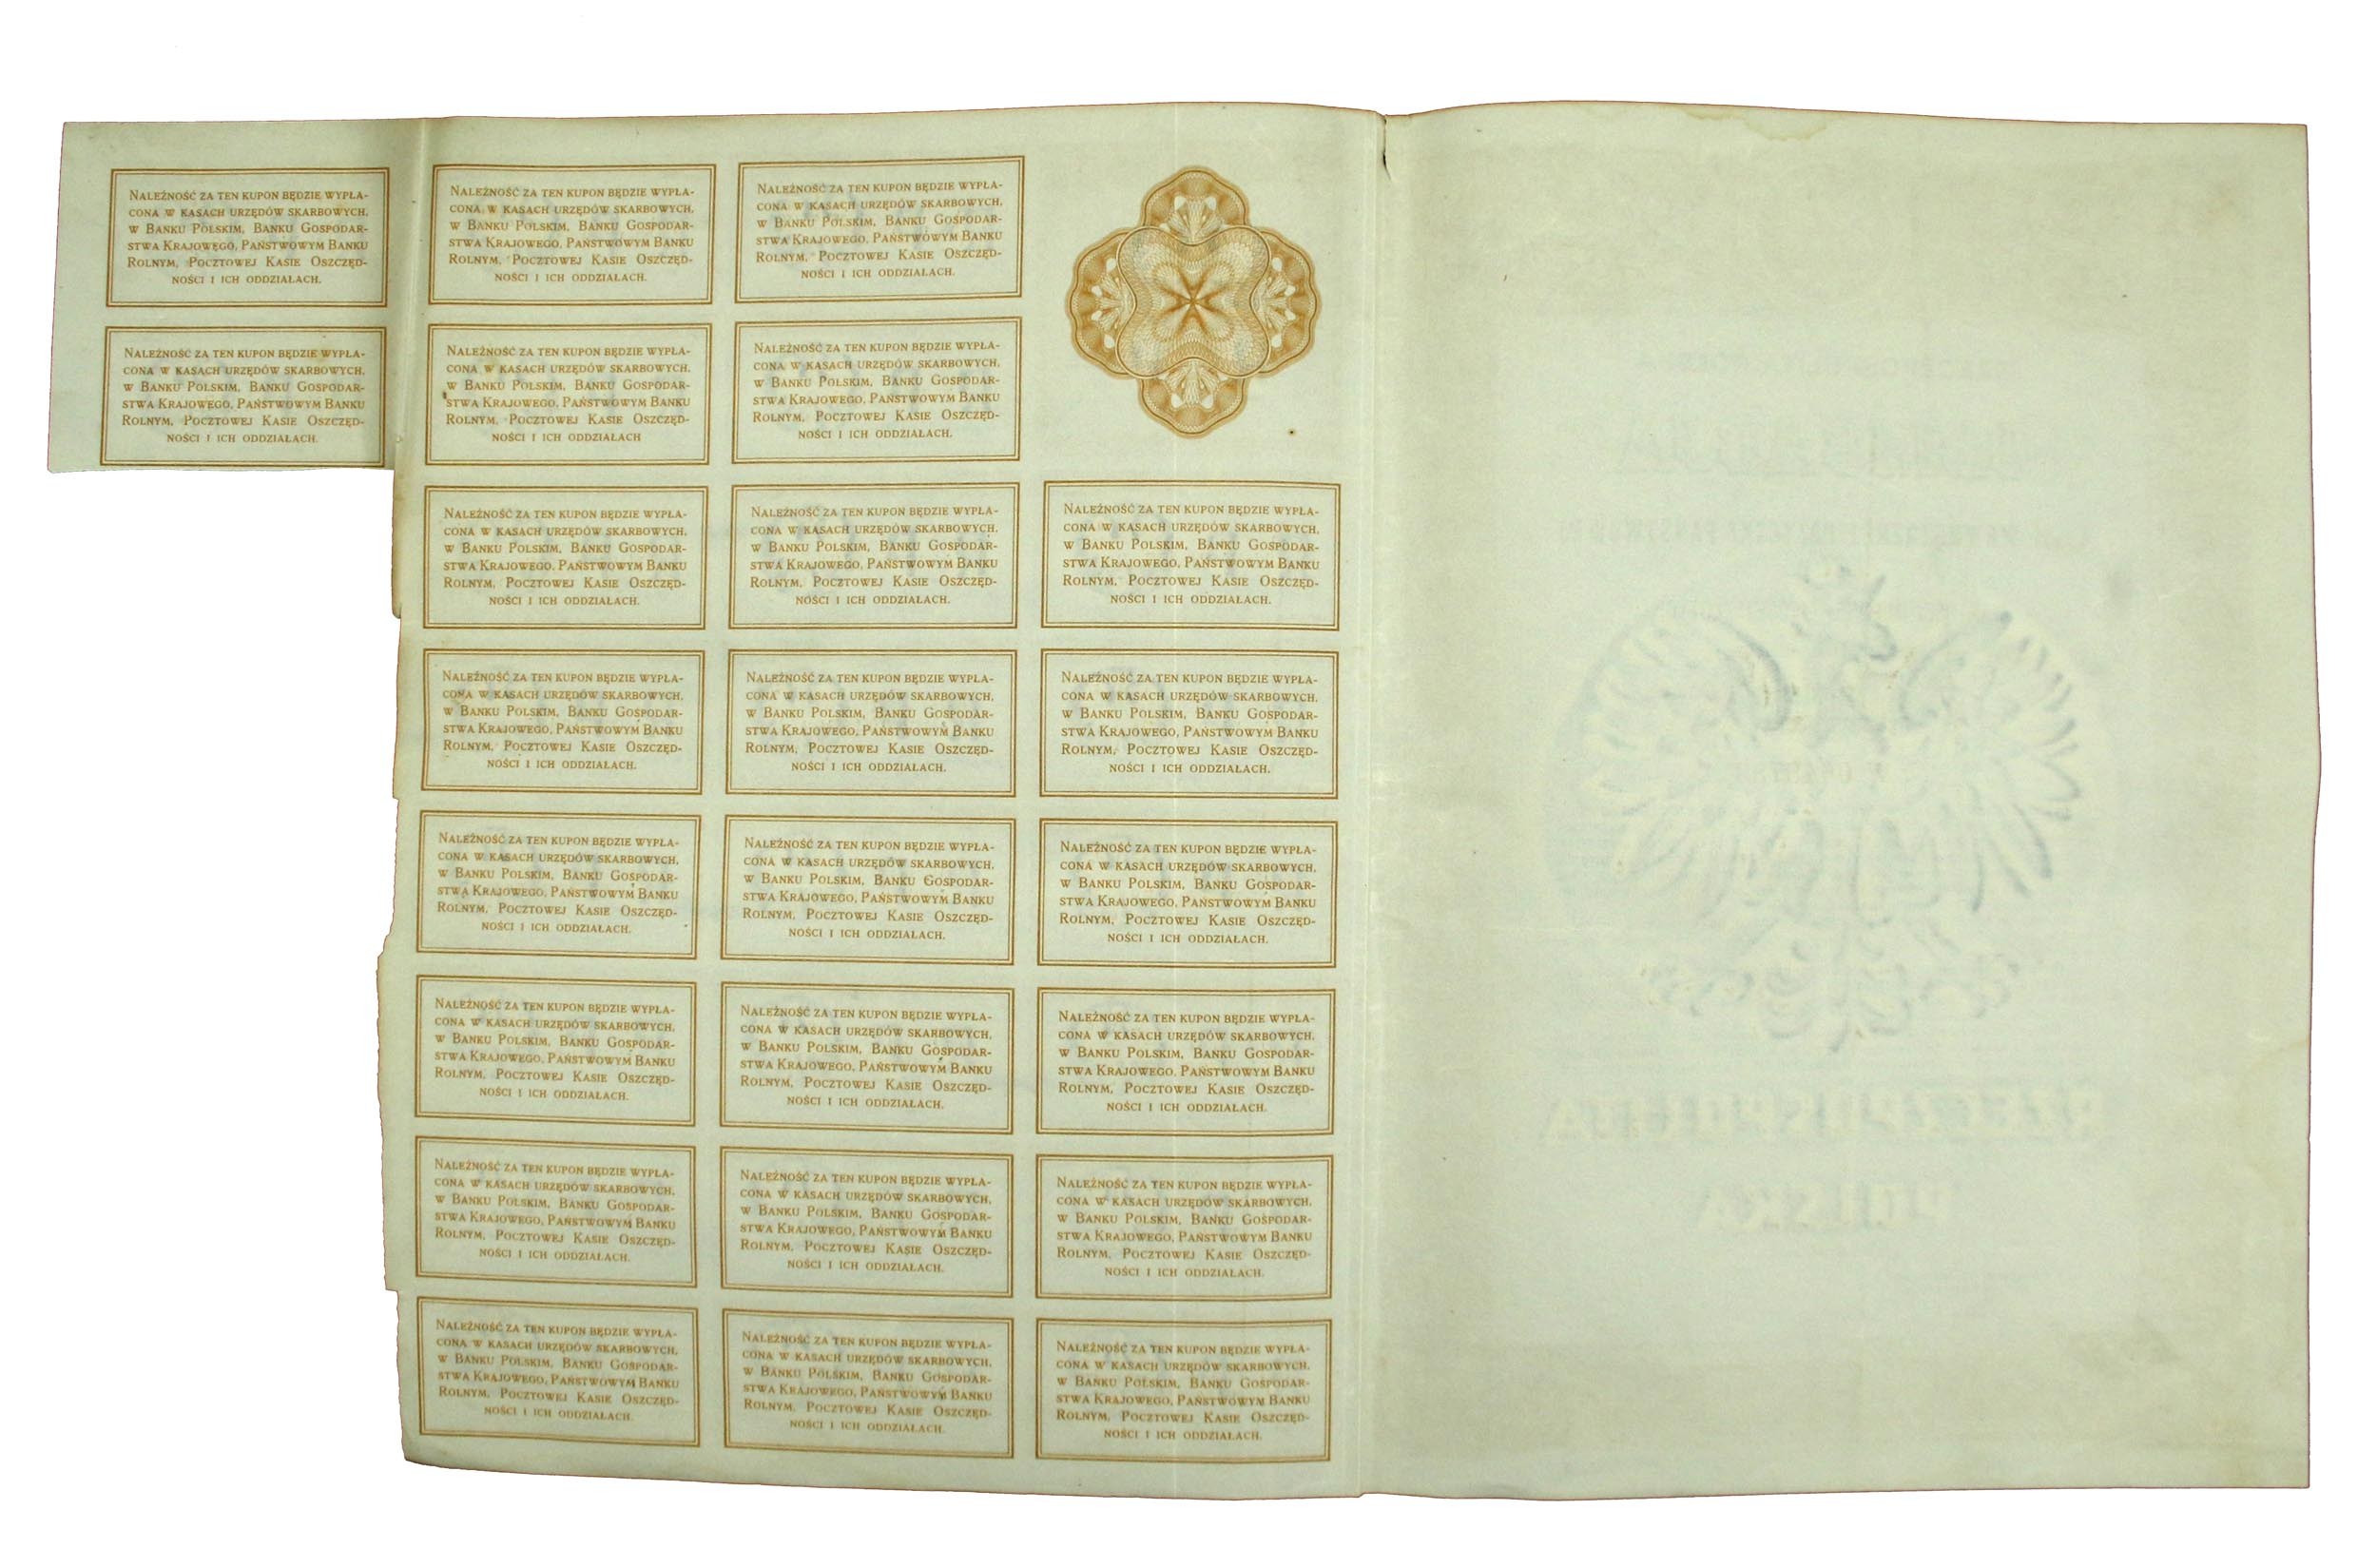 Należność za ten kupon będzie wypła-
cona w kasach urzędów skarbowych,
w Banku Polskim, Banku Gospodar-
stwa Krajowego, Państwowym Banku
Rolnym, Pocztowej Kasie Oszczęd-
ności i ich oddziałach.
Należność za ten kupon będzie wypła-
cona w kasach urzędów skarbowych,
w Banku Polskim, Banku Gospodar-
stwa Krajowego, Państwowym Banku
Rolnym, Pocztowej Kasie Oszczęd-
ności i ich oddziałach.
Należność za ten kupon będzie wypła-
cona w kasach urzędów skarbowych,
w Banku Polskim, Banku Gospodar-
stwa Krajowego, Państwowym Banku
Rolnym, Pocztowej Kasie Oszczęd-
ności i ich oddziałach.
Należność za ten kupon będzie wypła-
cona w kasach urzędów skarbowych,
w Banku Polskim, Banku Gospodar-
stwa Krajowego, Państwowym Banku
Rolnym, Pocztowej Kasie Oszczęd-
ności i ich oddziałach.
Należność za ten kupon będzie wypła-
cona w kasach urzędów skarbowych,
w Banku Polskim, Banku Gospodar-
stwa Krajowego, Państwowym Banku
Rolnym, Pocztowej Kasie Oszczęd-
ności i ich oddziałach
Należność za ten kupon będzie wypła-
cona w kasach urzędów skarbowych,
w Banku Polskim, Banku Gospodar-
stwa Krajowego, Państwowym Banku
Rolnym, Pocztowej Kasie Oszczęd-
ności i ich oddziałach.
Należność za ten kupon będzie wypła-
cona w kasach urzędów skarbowych,
w Banku Polskim, Banku Gospodar-
stwa Krajowego, Państwowym Banku
Rolnym, Pocztowej Kasie Oszczęd-
ności i ich oddziałach.
Należność za ten kupon będzie wypła-
cona w kasach urzędów skarbowych,
w Banku Polskim, Banku Gospodar-
stwa Krajowego, Państwowym Banku
Rolnym, Pocztowej Kasie Oszczęd-
ności i ich oddziałach.
Należność za ten kupon będzie wypła-
cona w kasach urzędów skarbowych,
w Banku Polskim, Banku Gospodar-
stwa Krajowego, Państwowym Banku
Rolnym, Pocztowej Kasie Oszczęd-
ności i ich oddziałach.
Należność za ten kupon będzie wypła-
cona w kasach urzędów skarbowych,
w Banku Polskim, Banku Gospodar-
stwa Krajowego, Państwowym Banku
Rolnym, Pocztowej Kasie Oszczęd-
ności i ich oddziałach.
Należność za ten kupon będzie wypła-
cona w kasach urzędów skarbowych,
w Banku Polskim, Banku Gospodar-
stwa Krajowego, Państwowym Banku
Rolnym, Pocztowej Kasie Oszczęd-
ności i ich oddziałach.
Należność za ten kupon będzie wypła-
cona w kasach urzędów skarbowych,
w Banku Polskim, Banku Gospodar-
stwa Krajowego, Państwowym Banku
Rolnym, Pocztowej Kasie Oszczęd-
ności i ich oddziałach.
Należność za ten kupon będzie wypła-
cona w kasach urzędów skarbowych,
w Banku Polskim, Banku Gospodar-
stwa Krajowego, Państwowym Banku
Rolnym, Pocztowej Kasie Oszczęd-
ności i ich oddziałach.
Należność za ten kupon będzie wypła-
cona w kasach urzędów skarbowych,
w Banku Polskim, Banku Gospodar-
stwa Krajowego, Państwowym Banku
Rolnym, Pocztowej Kasie Oszczęd-
ności i ich oddziałach.
Należność za ten kupon będzie wypła-
cona w kasach urzędów skarbowych,
w Banku Polskim, Banku Gospodar-
stwa Krajowego, Państwowym Banku
Rolnym, Pocztowej Kasie Oszczęd-
ności i ich oddziałach.
Należność za ten kupon będzie wypła-
cona w kasach urzędów skarbowych,
w Banku Polskim, Banku Gospodar-
stwa Krajowego, Państwowym Banku
Rolnym, Pocztowej Kasie Oszczęd-
ności i ich oddziałach.
Należność za ten kupon będzie wypła-
cona w kasach urzędów skarbowych,
w Banku Polskim, Banku Gospodar-
stwa Krajowego, Państwowym Banku
Rolnym, Pocztowej Kasie Oszczęd-
ności i ich oddziałach.
Należność za ten kupon będzie wypła-
cona w kasach urzędów skarbowych,
w Banku Polskim, Banku Gospodar-
stwa Krajowego, Państwowym Banku
Rolnym, Pocztowej Kasie Oszczęd-
ności i ich oddziałach.
Należność za ten kupon będzie wypła-
cona w kasach urzędów skarbowych,
w Banku Polskim, Banku Gospodar-
stwa Krajowego, Państwowym Banku
Rolnym, Pocztowej Kasie Oszczęd-
ności i ich oddziałach.
Należność za ten kupon będzie wypła-
cona w kasach urzędów skarbowych,
w Banku Polskim, Banku Gospodar-
stwa Krajowego, Państwowym Banku
Rolnym, Pocztowej Kasie Oszczęd-
ności i ich oddziałach.
Należność za ten kupon będzie wypła-
cona w kasach urzędów skarbowych,
w Banku Polskim, Banku Gospodar-
stwa Krajowego, Państwowym Banku
Rolnym, Pocztowej Kasie Oszczęd-
ności i ich oddziałach.
Należność za ten kupon będzie wypła-
cona w kasach urzędów skarbowych,
w Banku Polskim, Banku Gospodar-
stwa Krajowego, Państwowym Banku
Rolnym, Pocztowej Kasie Oszczęd-
ności i ich oddziałach.
Należność za ten kupon będzie wypła-
cona w kasach urzędów skarbowych,
w Banku Polskim, Banku Gospodar-
stwa Krajowego, Państwowym Banku
Rolnym, Pocztowej Kasie Oszczęd-
ności i ich oddziałach.
Należność za ten kupon będzie wypła-
cona w kasach urzędów skarbowych,
w Banku Polskim, Banku Gospodar-
stwa Krajowego, Państwowym Banku
Rolnym, Pocztowej Kasie Oszczęd-
ności i ich oddziałach.